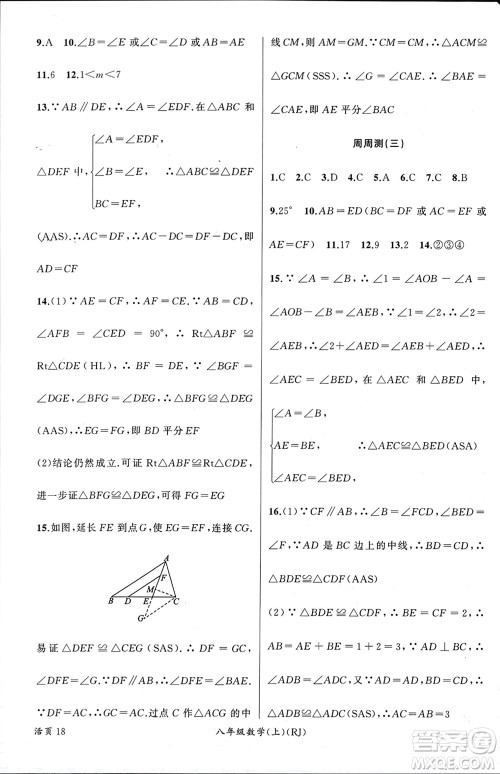 9.A 10.∠B=∠E或∠C=∠D或AB=AE
11.6 12.1<m<7
13.∵AB∥DE,∴∠A=∠EDF,在△ABC和
△DEF中
∠A=∠EDF,
∠B=∠E,
AC=DF,
∴△ABC≌△DEF
(AAS).∴AC=DF,∴AC-DC=DF-DC,即
AD=CF
14.(1)∵AE=CF,∴AF=CE,又∵
∠AFB=∠CED=90°,∴Rt△ABF≌
Rt△CDE(HL),∴BF=DE,∵∠BGF=
∠DGE,∠BFG=∠DEG,∴△BFG≌△DEG
(AAS),∴FG=EG,即BD平分EF
(2)结论仍然成立.可证Rt△ABF≌Rt△CDE,
进一步证△BFG≌△DEG.可得FG=EG
15.如图,延长FE到点G,使EG=EF,连接CG.
A
F
M
B D E C
G
易证△DEF≌△CEG(SAS).∴DF=GC,
∠DFE=∠G,∵DF∥AB,∴∠DFE=∠BAE.
∵DF=AC,∴GC=AC.过点C作△AGC的中
线CM,则AM=GM.∵CM=CM,∴△ACM≌
△GCM(SSS),∴∠G=∠CAE,∴∠BAE=
∠CAE,即AE平分∠BAC
周周测(三)
1.C 2.C 3.D 4.A 5.C 6.C 7.C 8.B
9.25° 10.AB=ED(BC=DF或AC=EF或
AE=CF) 11.17 12.9 13.2 14.②③④
15.∵∠1=∠2,∴∠1=∠AOB-∠A-
∠BEO,∠2=∠AOB-∠B-∠AEB,∵∠A=
∠B,∴∠2=∠BEO,∴∠1=∠BEO,∴∠AEC=
∠1+∠AEB,∴∠2+∠AEB=∠BED,∴
∠AEC=∠BED,在△AEC和△BED中,
∠A=∠B,
AE=BE,
∠AEC=∠BED,
∴△AEC≌△BED(ASA)
16.(1)∵CF∥AB,∴∠B=∠FCD,∠BED=
∠F,∵AD是BC边上的中线,∴BD=CD,
∴△BDE≌△CDF(AAS)
(2)∵△BDE≌△CDF,∴BE=CF=2,
∴AB=AE+BE=1+2=3,∵AD⊥BC,
∠ADB=∠ADC,在△ABD和△ACD中
AD=AD,∠ADB=∠ADC,BD=CD,∴△ABD
≌△ACD,∴AC=AB=3
活页 18
八年级数学(上)(RJ)